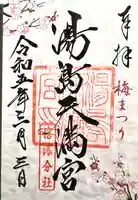 奉拝
梅まつり
湯島天満宮
令和五年三月三日